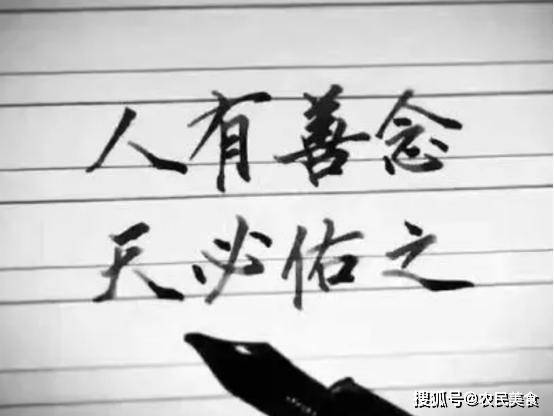 人有善念
天必佑之
搜狐号@农民美食